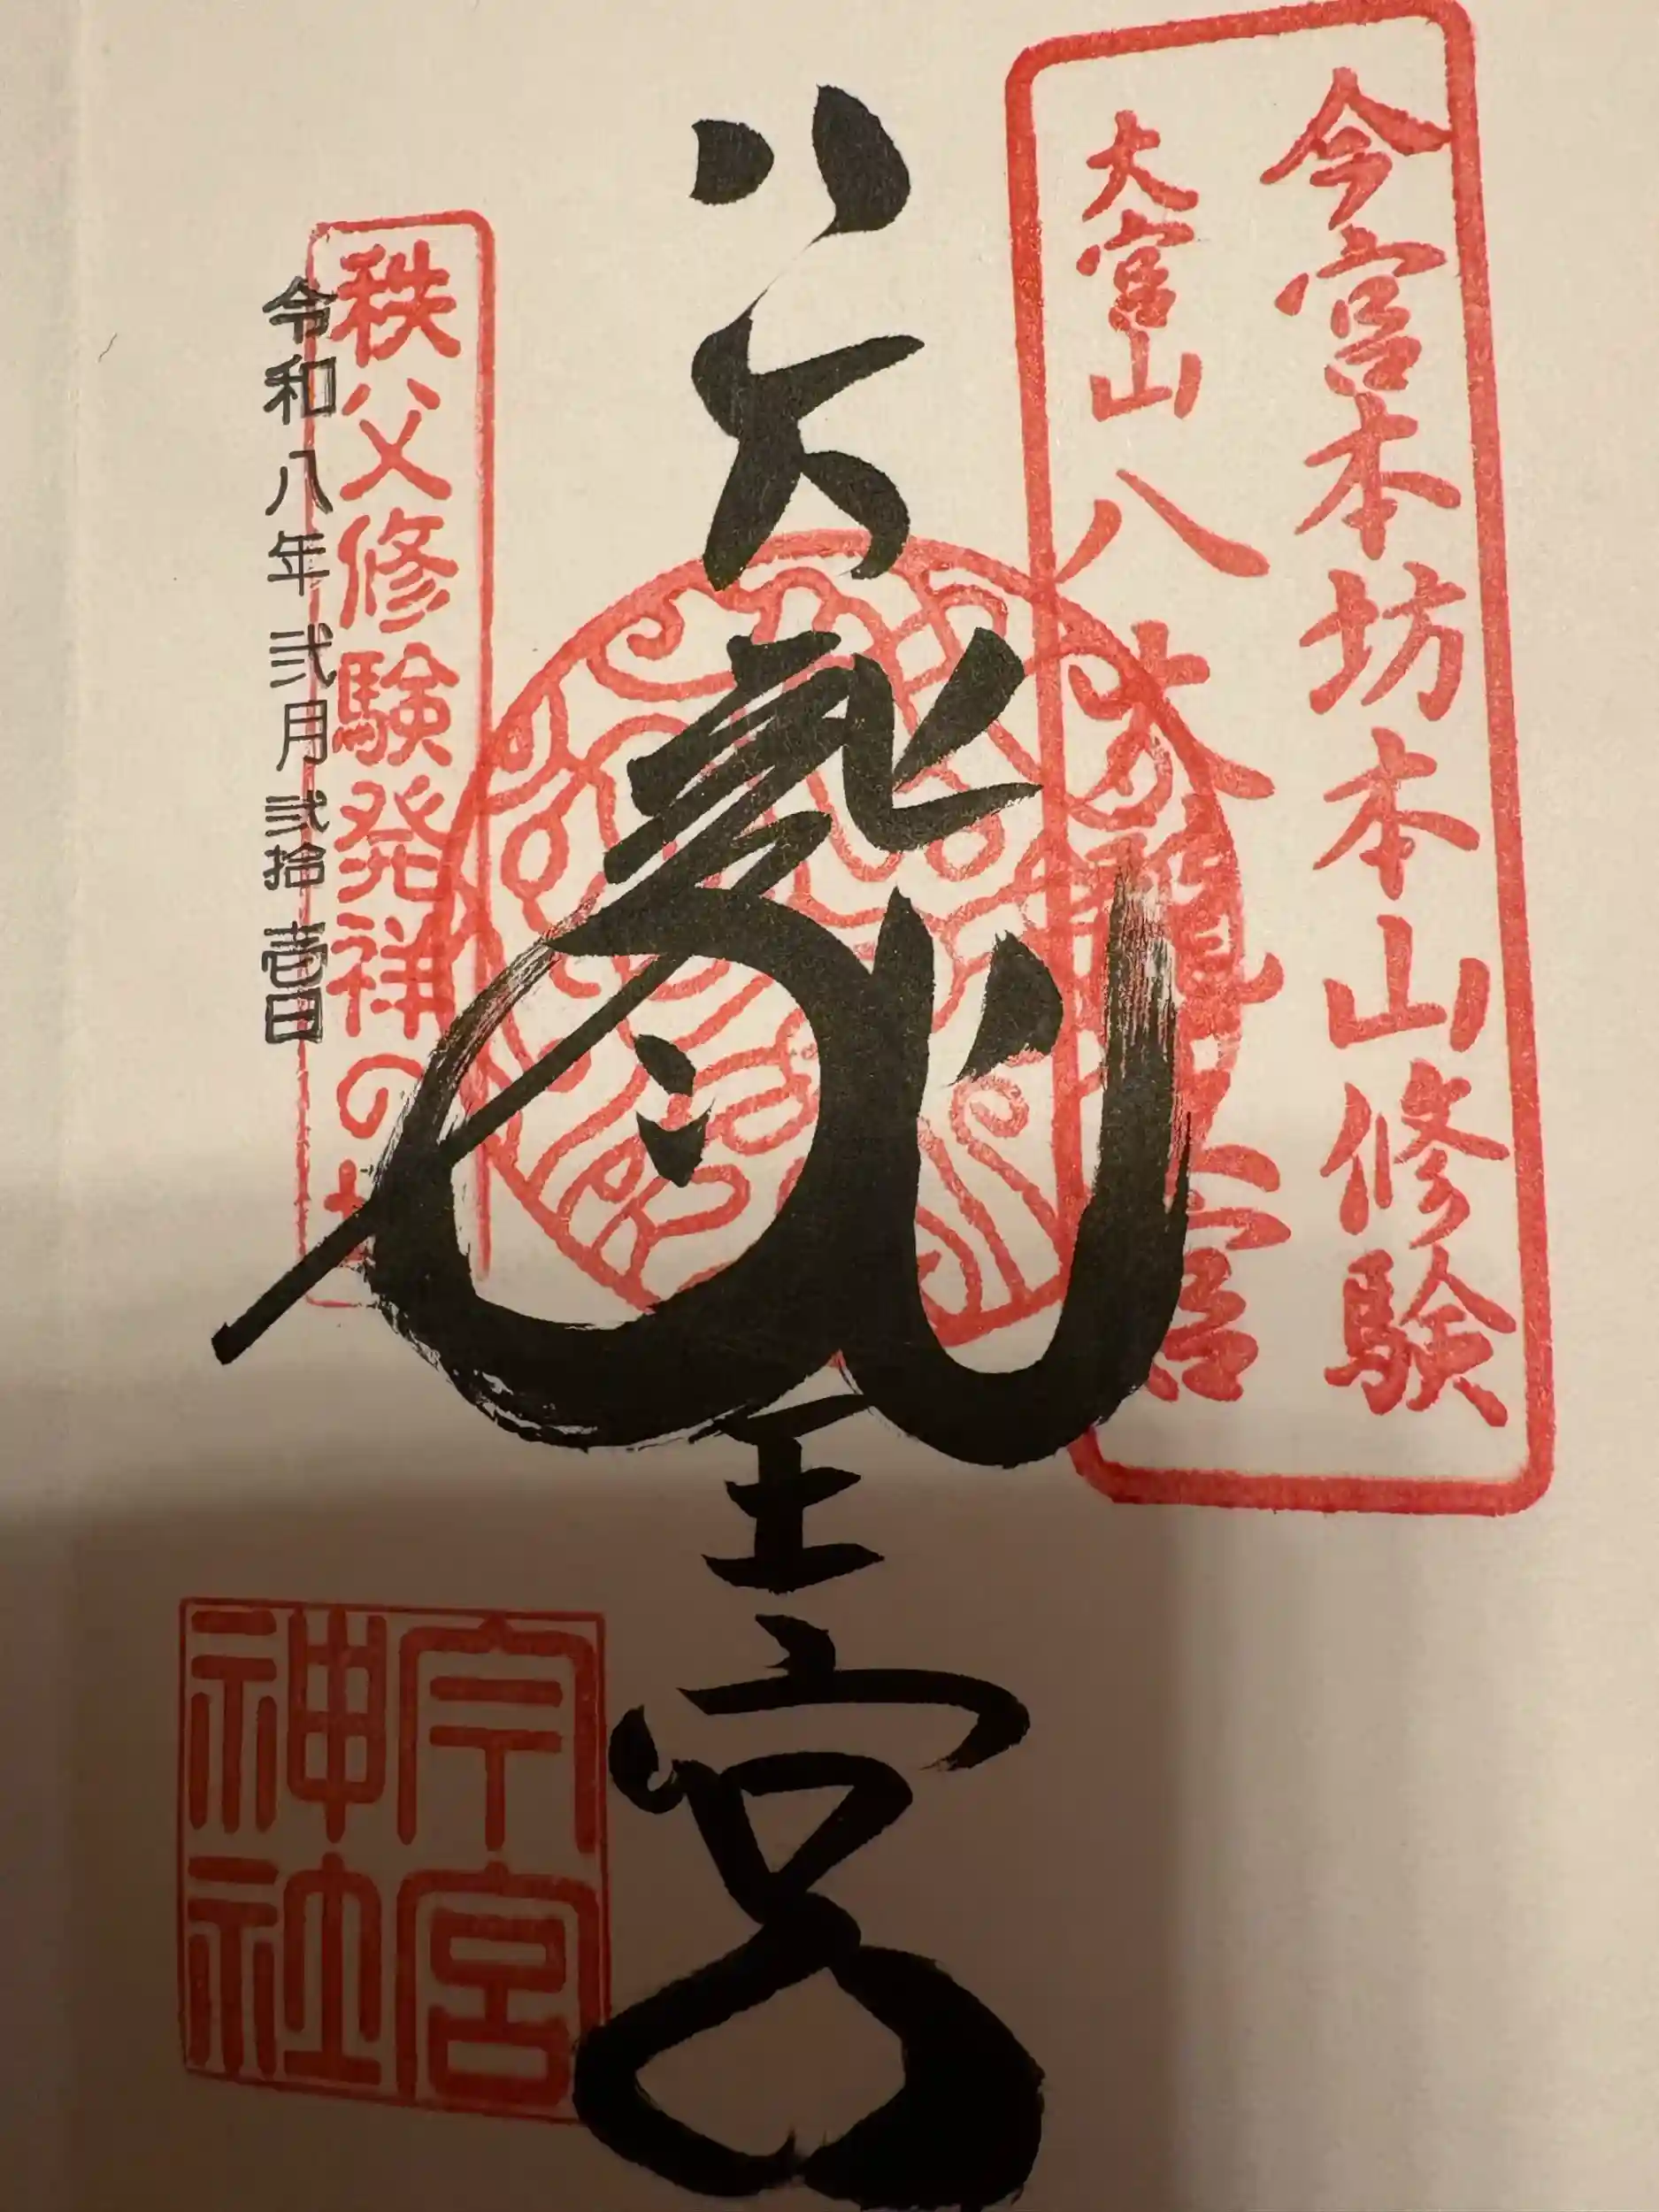 今宮本坊本山修験
大宮山八大龍王宮
八大龍王宮
秩父修験発祥の地
令和八年弐月弐拾壱日
今宮
神社